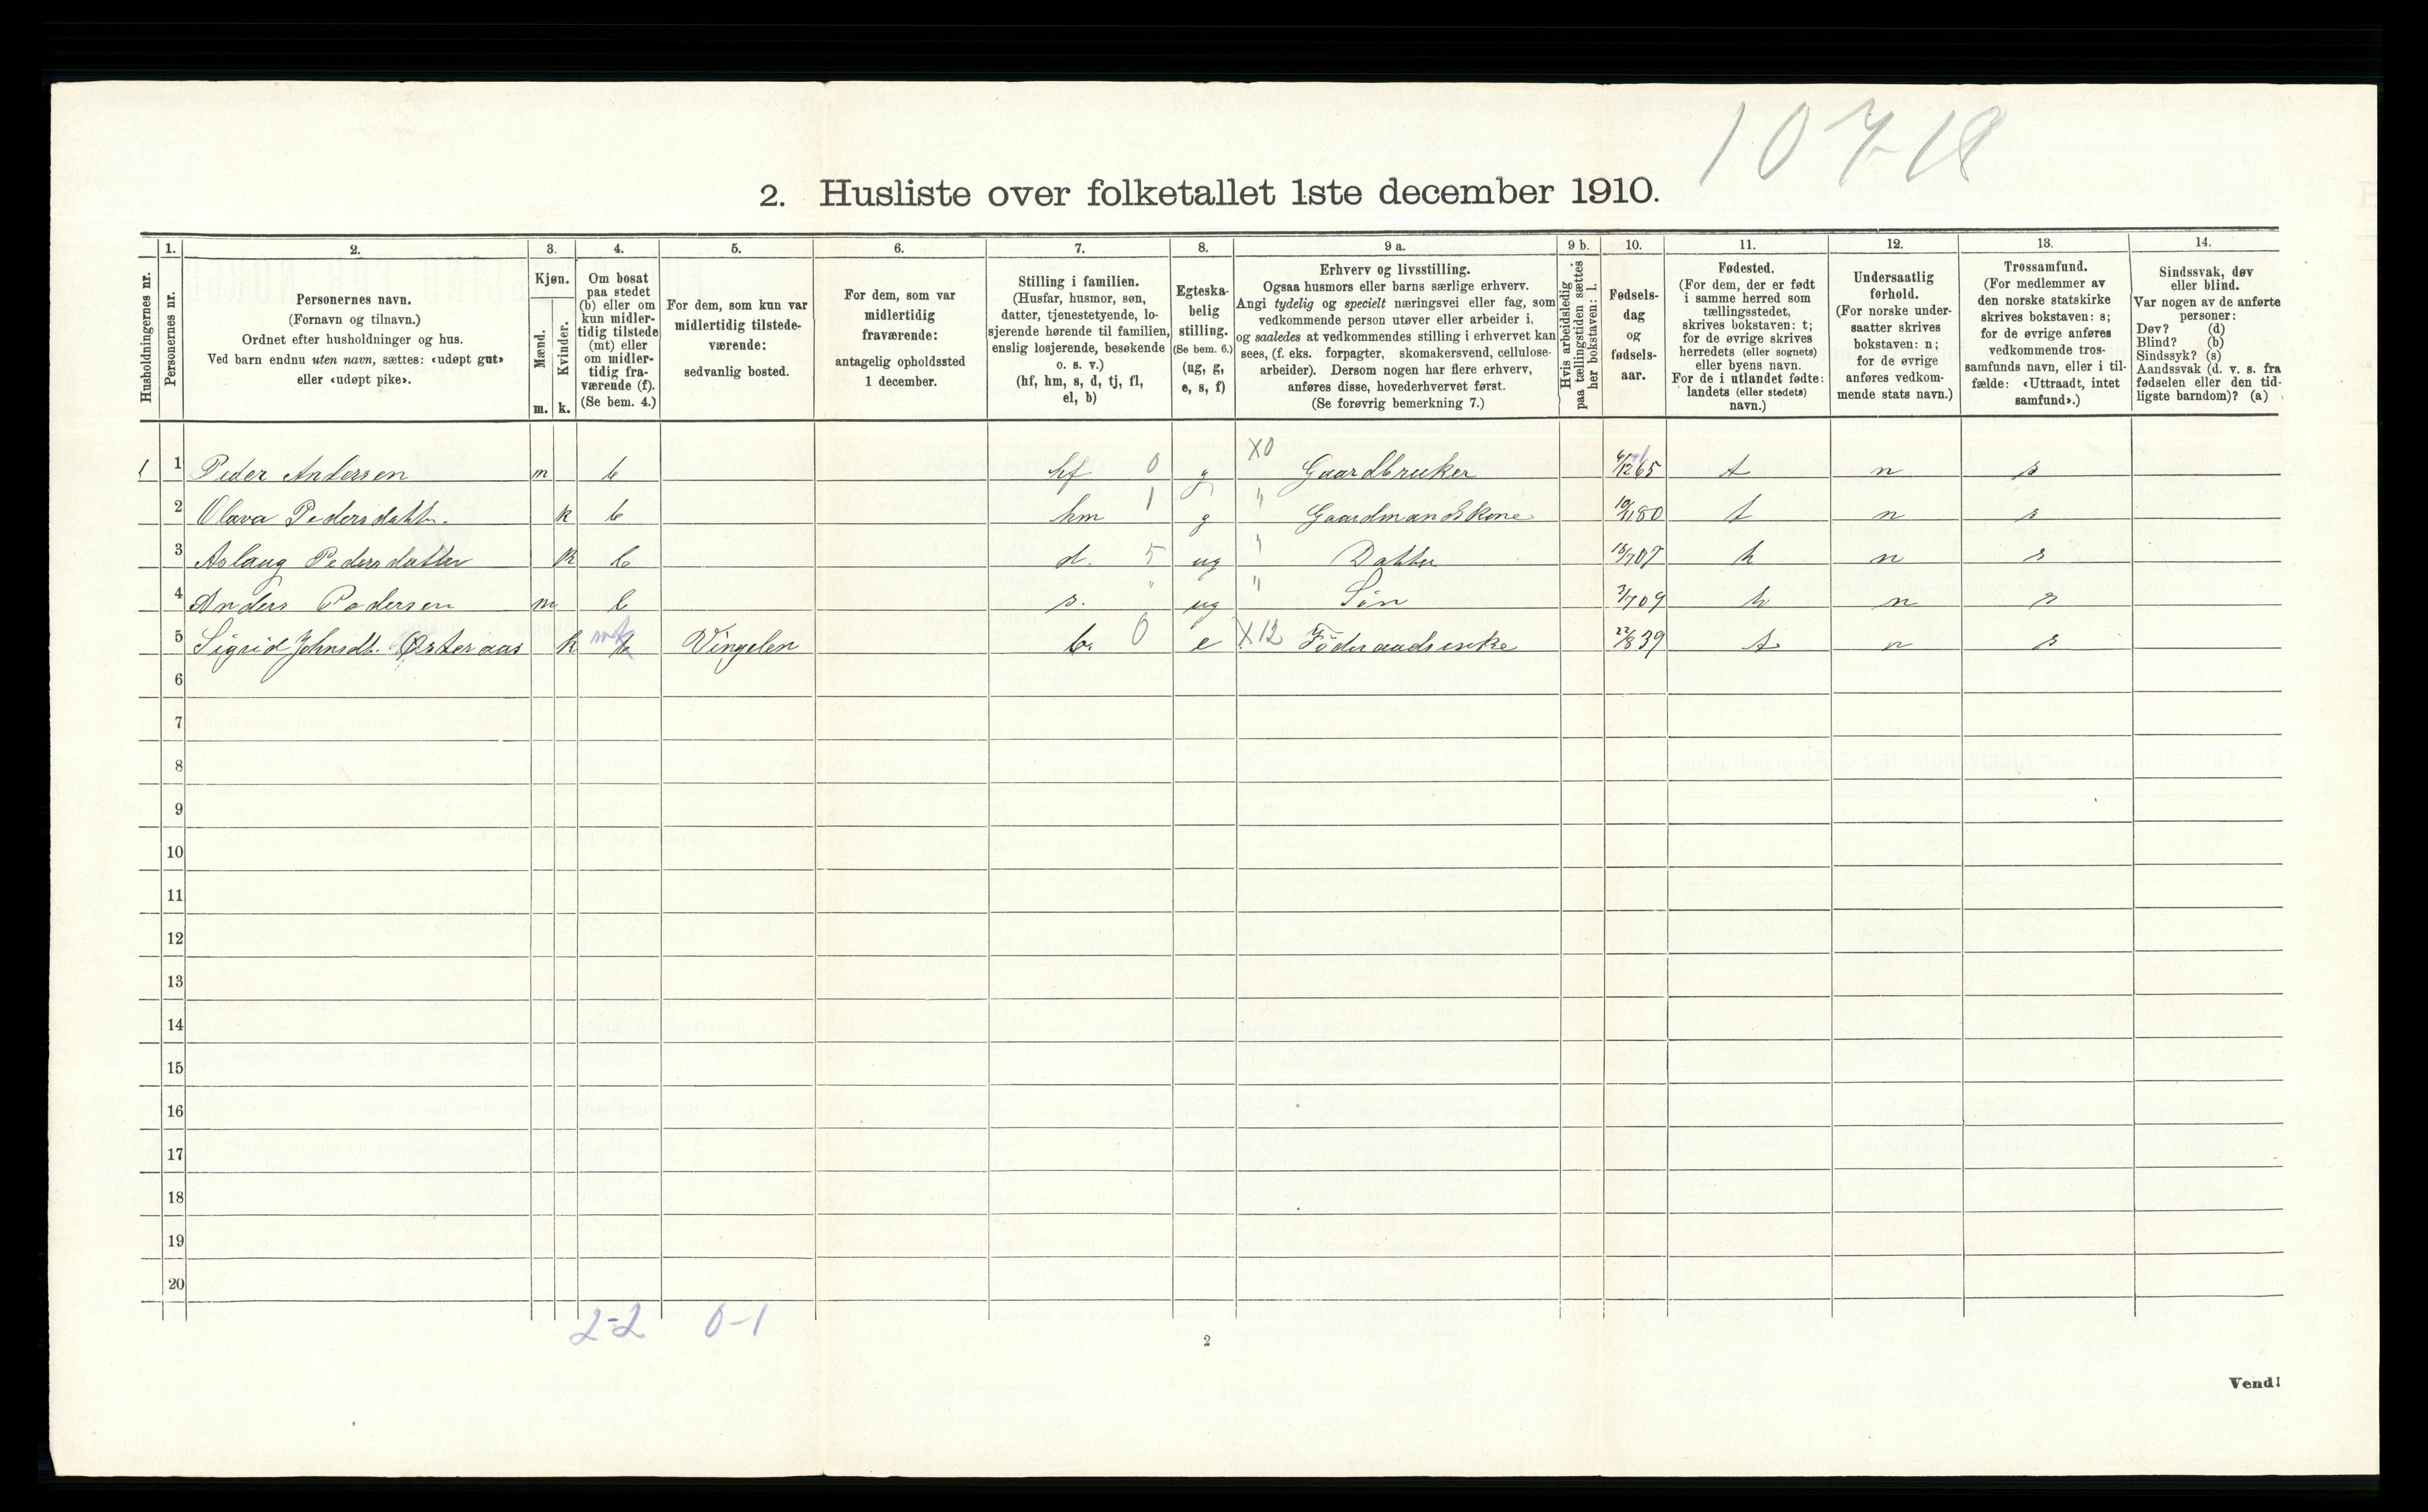 1071a
2. Husliste over folketallet 1ste december 1910.
Husholdningernes nr.
1. Personernes nr.
2. Personernes navn. (Fornavn og tilnavn.) Ordnet efter husholdninger og hus. Ved barn endnu uten navn, sættes: «udøpt gut» eller «udøpt pike».
3. Kjøn. Mænd. m. Kvinder. k.
4. Om bosat paa stedet (b) eller om kun midlertidig tilstede (mt) eller om midlertidig fraværende (f). (Se bem. 4.)
5. For dem, som kun var midlertidig tilstedeværende: sedvanlig bosted.
6. For dem, som var midlertidig fraværende: antagelig opholdssted 1 december.
7. Stilling i familien. (Husfar, husmor, søn, datter, tjenestetyende, losjerende hørende til familien, enslig losjerende, besøkende o. s. v.) (hf, hm, s, d, tj, fl, el, b)
8. Egteskabelig stilling. (Se bem. 6.) (ug, g, e, s, f)
9 a. Erhverv og livsstilling. Ogsaa husmors eller barns særlige erhverv. Angi tydelig og specielt næringsvei eller fag, som vedkommende person utøver eller arbeider i, og saaledes at vedkommendes stilling i erhvervet kan sees, (f. eks. forpagter, skomakersvend, cellulosearbeider). Dersom nogen har flere erhverv, anføres disse, hovederhvervet først. (Se forøvrig bemerkning 7.)
9 b. Hvis arbeidsledig paa tællingstiden sættes her bokstaven: l.
10. Fødselsdag og fødselsaar.
11. Fødested. (For dem, der er født i samme herred som tællingsstedet, skrives bokstaven: t; for de øvrige skrives herredets (eller sognets) eller byens navn. For de i utlandet fødte: landets (eller stedets) navn.)
12. Undersaatlig forhold. (For norske undersaatter skrives bokstaven: n; for de øvrige anføres vedkommende stats navn.)
13. Trossamfund. (For medlemmer av den norske statskirke skrives bokstaven: s; for de øvrige anføres vedkommende trossamfunds navn, eller i tilfælde: «Uttraadt, intet samfund».)
14. Sindssvak, døv eller blind. Var nogen av de anførte personer: Døv? (d) Blind? (b) Sindssyk? (s) Aandssvak (d. v. s. fra fødselen eller den tidligste barndom)? (a)
1 1 Peder Andersen m b hf 0 g X0 Gaardbruker 6/12 65 t n s
2 Olava Pedersdattr. k b hm 1 g " Gaardmandskone 10/11 80 t n s
3 Aslaug Pedersdatter k b d. 5 ug " Datter 18/7 07 t n s
4 Anders Pedersen m b s. " ug " Søn 3/7 09 t n s
5 Sigrid Johnsdt. Østeraas k mt b Vingelen b. 0 e X12 Föderaadsenke 22/8 39 t n s
6
7
8
9
10
11
12
13
14
15
16
17
18
19
20
2-2 0-1
2
Vend!